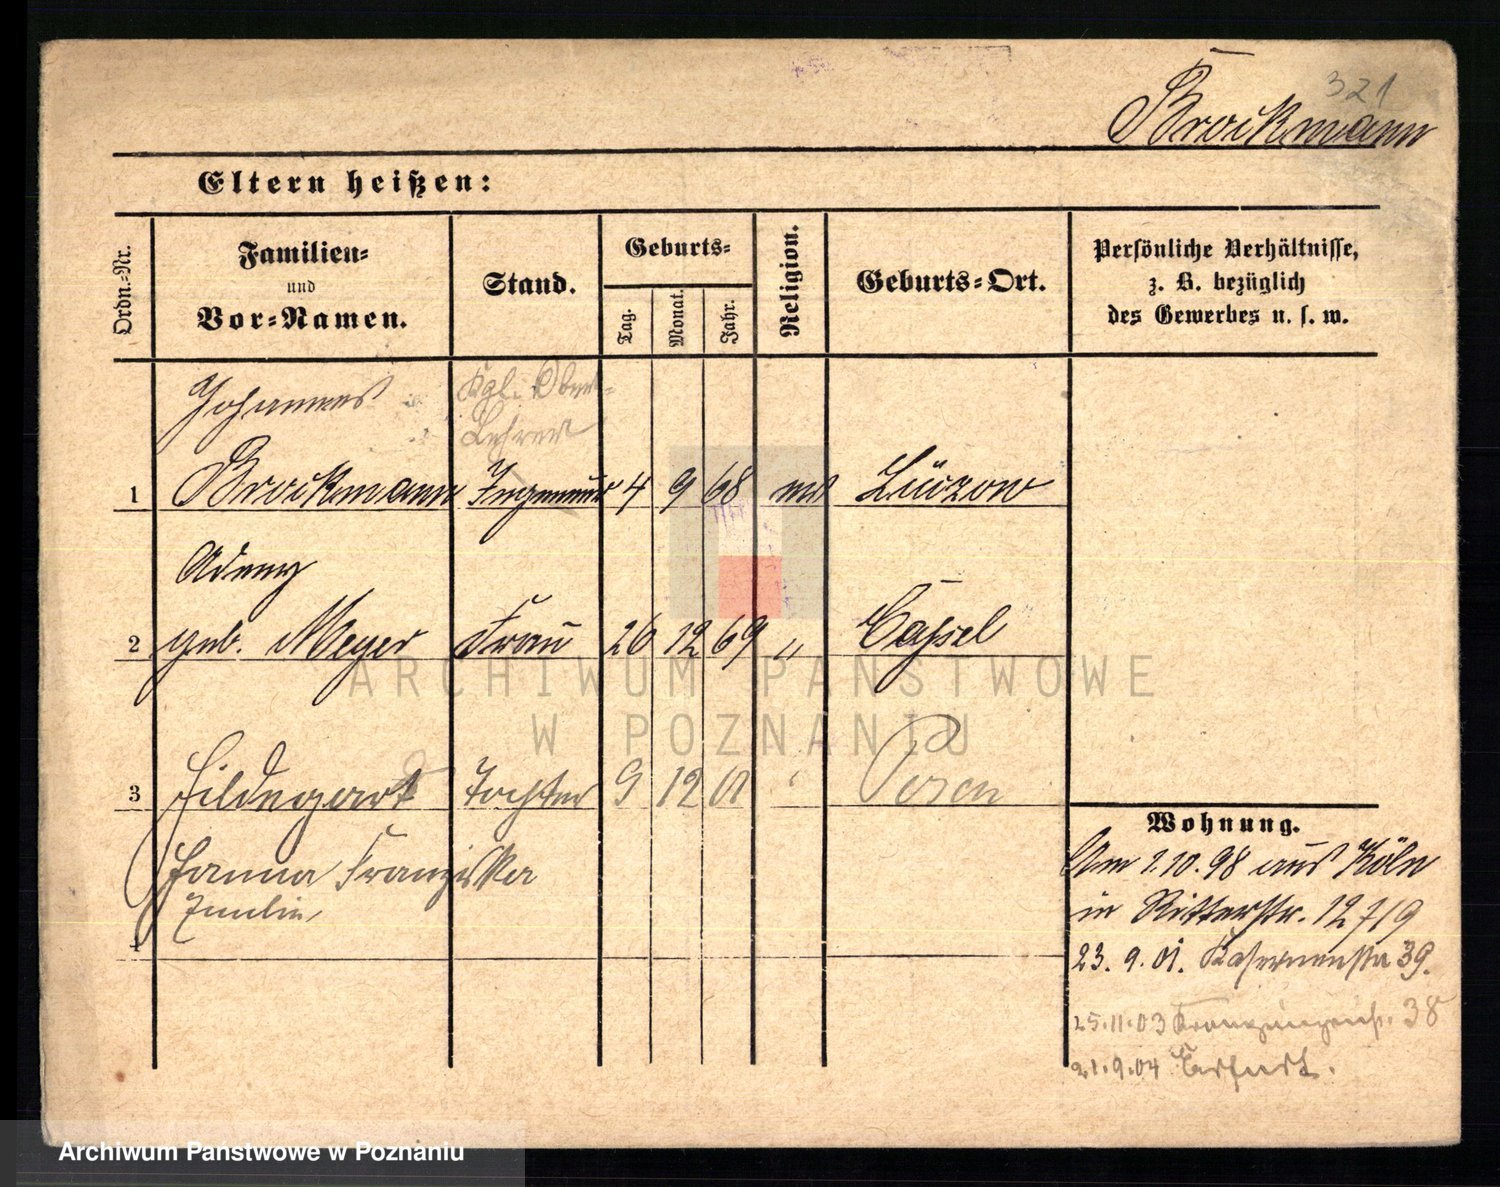 321
Brockmann
Eltern heißen:
Ordn.-Nr.
Familien-
und
Vor-Namen.
Stand.
Geburts-
Tag.
Monat.
Jahr.
Religion.
Geburts-Ort.
Persönliche Verhältnisse,
z. B. bezüglich
des Gewerbes u. s. w.
Johannes
Kgl. Ober-
Lehrer
1 Brockmann Ingenieur 4 9 68 ev Lüzow
2 geb. Meyer Frau 26 12 69 " Cassel
ARCHIWUM PAŃSTWOWE
W POZNANIU
3 Hildegart Tochter 9 12 01 " Posen
Hanna Franziska
4
Wohnung.
Am 1.10.98 aus Köln
in Ritterstr. 12 7/9
23.9.01. Kasernenstr 39.
25.11.03 38
21.9.04 Erfurt.
Archiwum Państwowe w Poznaniu